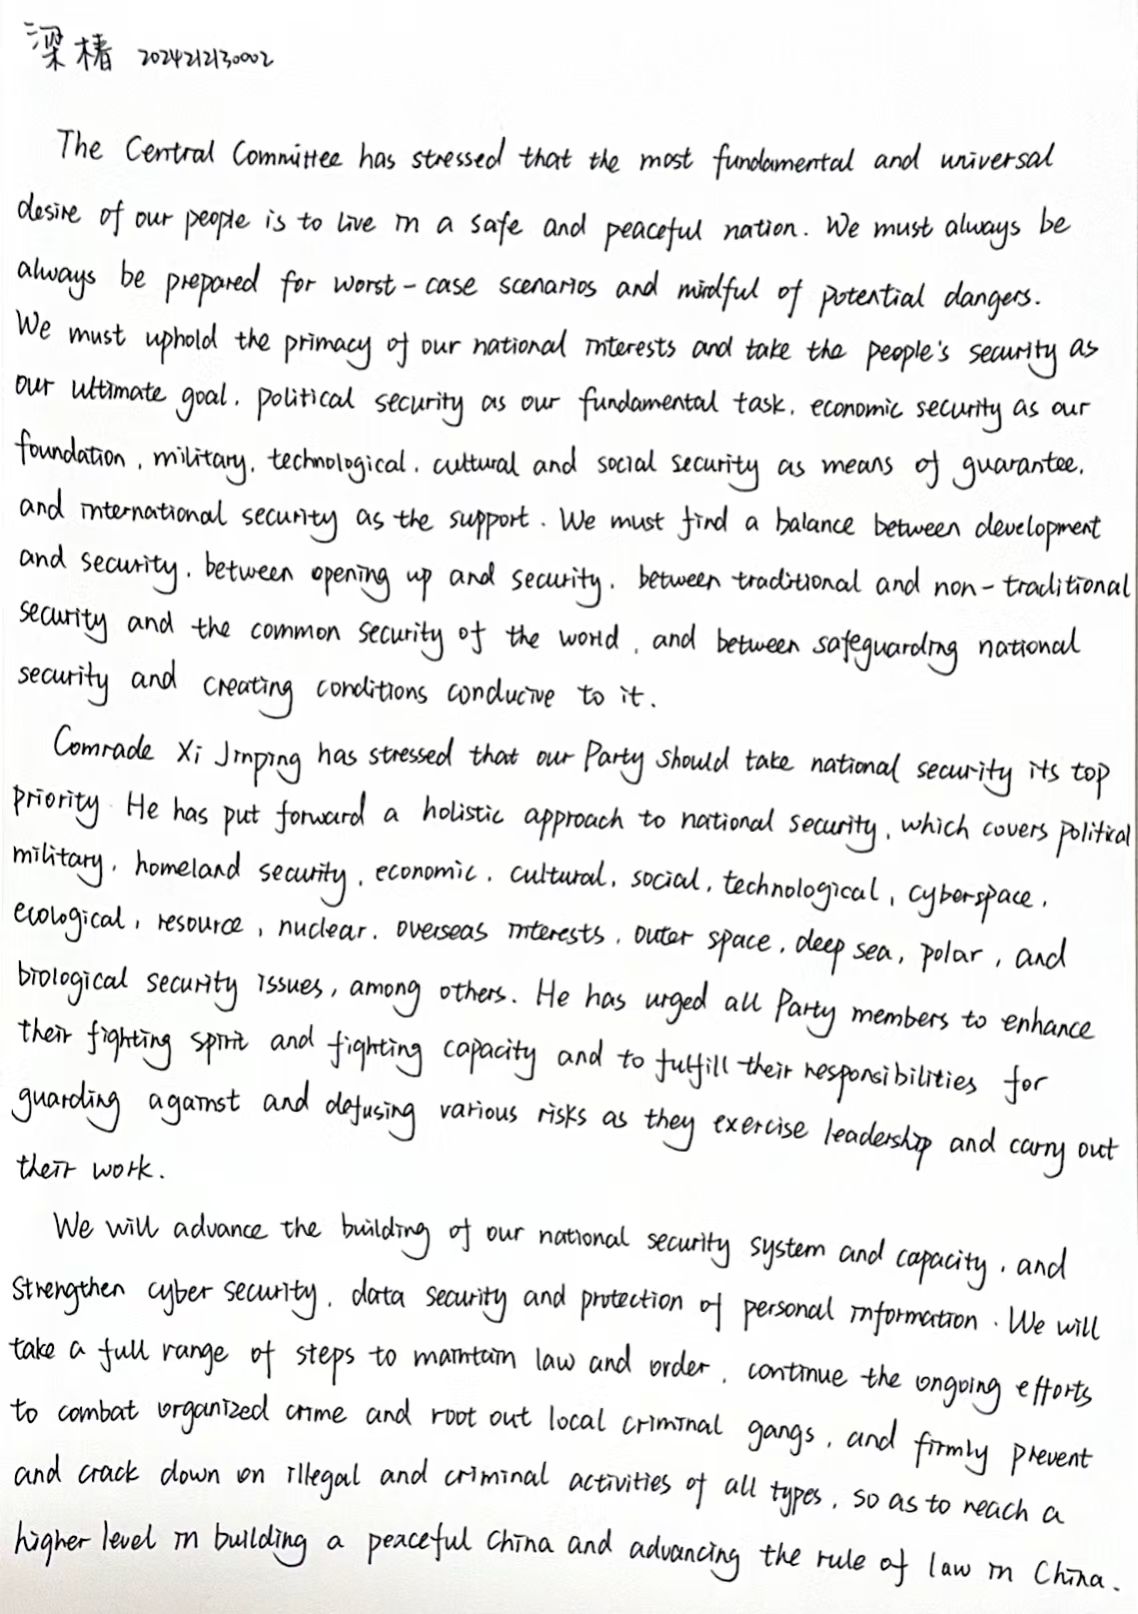 梁椿 2024212130002
The Central Committee has stressed that the most fundamental and universal
desire of our people is to live in a safe and peaceful nation. We must always be
always be prepared for worst-case scenarios and mindful of potential dangers.
We must uphold the primacy of our national interests and take the people's security as
our ultimate goal, political security as our fundamental task, economic security as our
foundation, military, technological, cultural and social security as means of guarantee,
and international security as the support. We must find a balance between development
and security, between opening up and security, between traditional and non-traditional
security and the common security of the world, and between safeguarding national
security and creating conditions conducive to it.
Comrade Xi Jinping has stressed that our Party should take national security its top
priority. He has put forward a holistic approach to national security, which covers political
military, homeland security, economic, cultural, social, technological, cyberspace,
ecological, resource, nuclear, overseas interests, outer space, deep sea, polar, and
biological security issues, among others. He has urged all Party members to enhance
their fighting spirit and fighting capacity and to fulfill their responsibilities for
guarding against and defusing various risks as they exercise leadership and carry out
their work.
We will advance the building of our national security system and capacity, and
strengthen cyber security, data security and protection of personal information. We will
take a full range of steps to maintain law and order, continue the ongoing efforts
to combat organized crime and root out local criminal gangs, and firmly prevent
and crack down on illegal and criminal activities of all types, so as to reach a
higher level in building a peaceful China and advancing the rule of law in China.